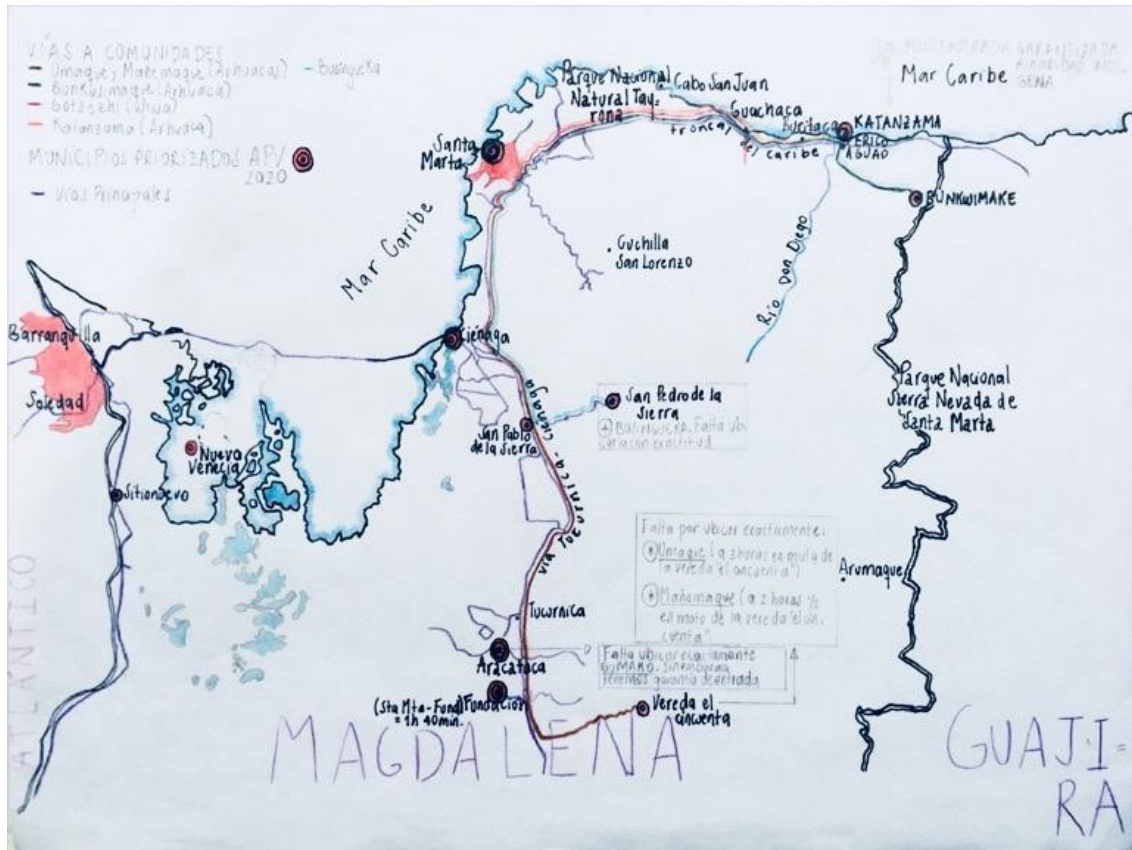 VÍAS A COMUNIDADES
Umaque y Mañemaque (Arhuacas) - Busingueka
Bunkuimaque (Arhuaca)
Gotsezhi (Wiwa)
Katanzama (Arhuaca)
MUNICIPIOS PRIORIZADOS API
2020
- Vías Principales
GARANTIZADA
GENA
Mar Caribe
Parque Nacional
Natural Tay-
rona
Cabo San Juan
Guachaca
Buritaca
KATANZAMA
PERICO
AGUAO
troncal del caribe
BUNKWIMAKE
Santa
Marta
Mar Caribe
Cuchilla
San Lorenzo
Río Don Diego
Barranquilla
Soledad
Ciénaga
Parque Nacional
Sierra Nevada de
Santa Marta
San Pedro de la
Sierra
BUSINGUEKA. Falta ubi
carla con exactitud
San Pablo
de la Sierra
Nueva
Venecia
Sitionuevo
vía Tucurnica - Ciénaga
Falta por ubicar exactamente:
Umaque (a 2 horas en mula de
la vereda "el cincuenta")
Mañemaque (a 2 horas ½
en moto de la vereda "el cin.
cuenta"
Arumaque
Tucurnica
Aracataca
Falta ubicar exactamente
GUMAKO. sinembargo
tenemos garantía de entrada
Fundación
(Sta Mta-Fund)
= 1h 40min.
Vereda el
cincuenta
ATLÁNTICO
MAGDALENA
GUAJI=
RA